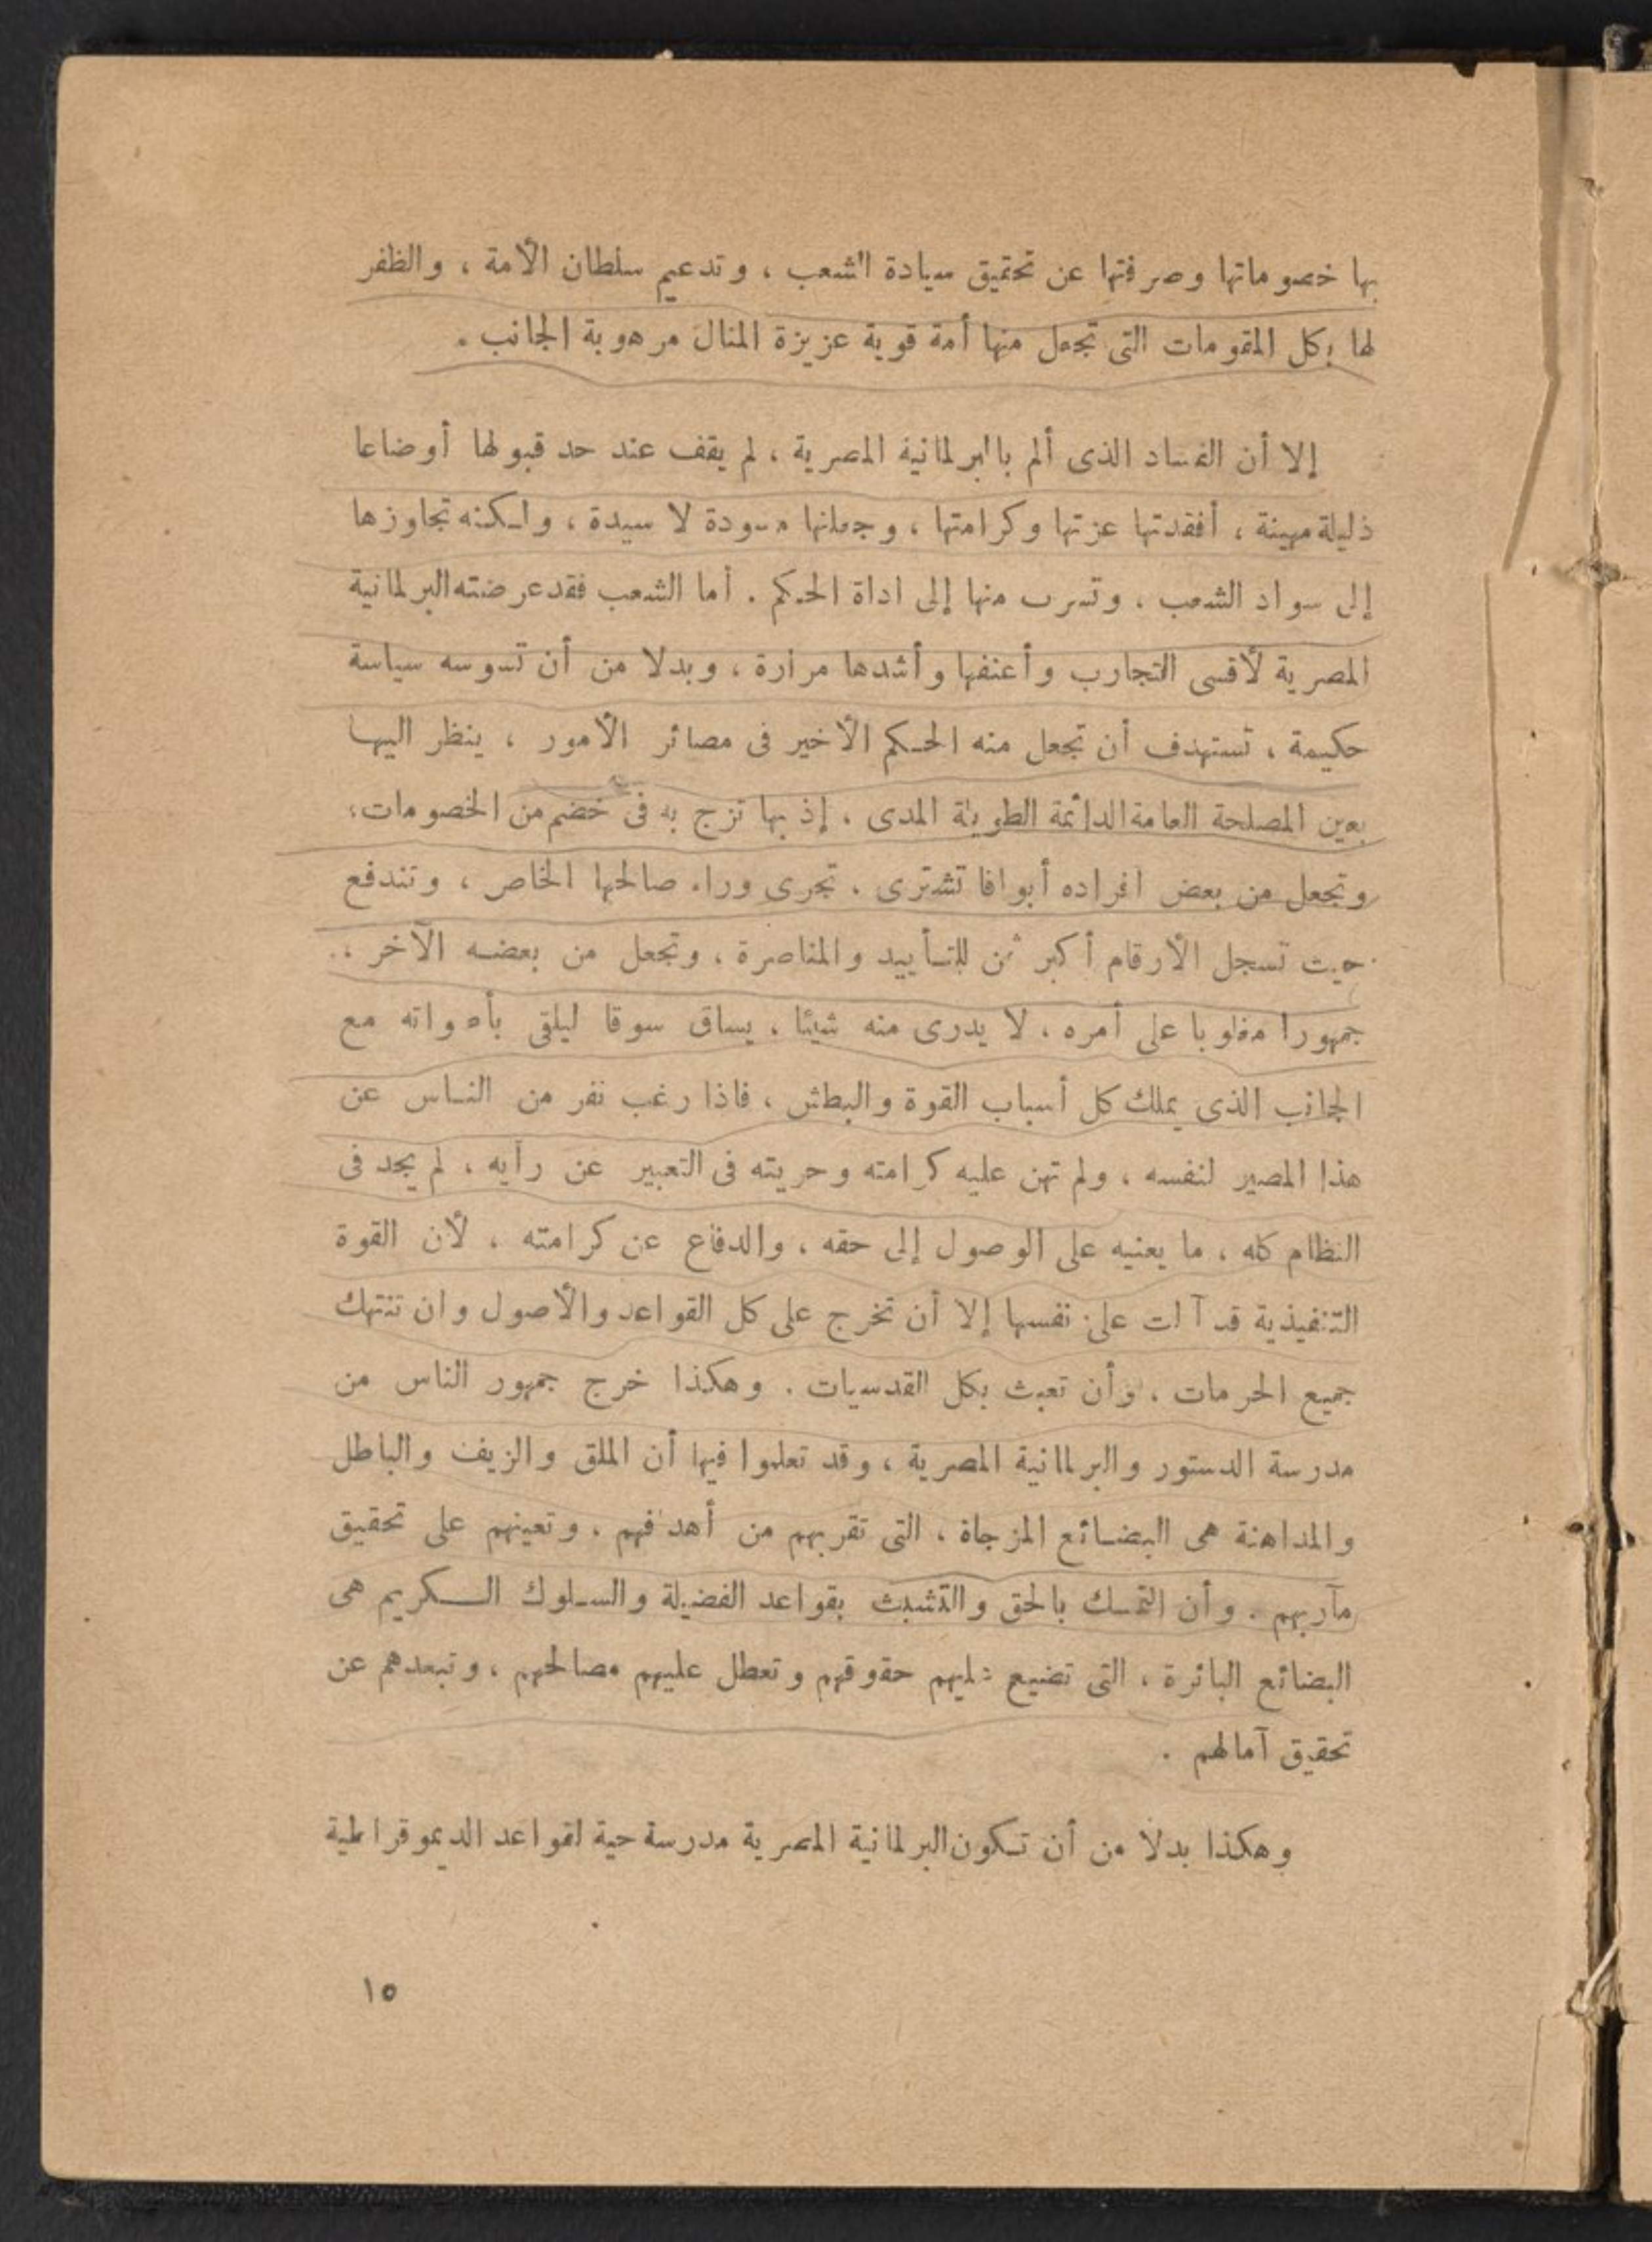 بها خصوماتها وصرفتها عن تحقيق سيادة الشعب ، وتدعيم سلطان الأمة ، والظفر
لها بكل المقومات التى تجعل منها أمة قوية عزيزة المنال مرهوبة الجانب .
إلا أن الفساد الذى ألم بالبرلمانية المصرية ، لم يقف عند حد قبولها أوضاعا
ذليلة مهينة ، أفقدتها عزتها وكرامتها ، وجعلتها مسودة لا سيدة ، ولكنه تجاوزها
إلى سواد الشعب ، وتسرب منها إلى اداة الحكم . أما الشعب فقد عرضته البرلمانية
المصرية لأقسى التجارب وأعنفها وأشدها مرارة ، وبدلا من أن تسوسه سياسة
حكيمة ، تستهدف أن تجعل منه الحكم الأخير فى مصائر الأمور ، ينظر اليها
بعين المصلحة العامة الدائمة الطويلة المدى . إذ بها تزج به فى خضم من الخصومات ،
وتجعل من بعض افراده أبواقا تشترى . تجرى وراء صالحها الخاص ، وتندفع
حيث تسجل الأرقام أكبر ثمن للتأييد والمناصرة ، وتجعل من بعضه الآخر ،
جمهورا مغلوبا على أمره ، لا يدرى منه شيئا ، يساق سوقا ليلقى بأصواته مع
الجانب الذى يملك كل أسباب القوة والبطش ، فاذا رغب نفر من الناس عن
هذا المصير لنفسه ، ولم تهن عليه كرامته وحريته فى التعبير عن رأيه ، لم يجد فى
النظام كله ، ما يعنيه على الوصول إلى حقه ، والدفاع عن كرامته ، لأن القوة
التنفيذية قد آلت على نفسها إلا أن تخرج على كل القواعد والأصول وان تنتهك
جميع الحرمات ، وأن تعبث بكل القدسيات . وهكذا خرج جمهور الناس من
مدرسة الدستور والبرلمانية المصرية ، وقد تعلموا فيها أن الملق والزيف والباطل
والمداهنة هى البضائع المزجاة ، التى تقربهم من أهدافهم . وتعينهم على تحقيق
مآربهم . وأن التمسك بالحق والتشبث بقواعد الفضيلة والسلوك الكريم هى
البضائع البائرة ، التى تضيع عليهم حقوقهم وتعطل عليهم مصالحهم ، وتبعدهم عن
تحقيق آمالهم .
وهكذا بدلا من أن تكون البرلمانية المصرية مدرسة حية لقواعد الديموقراطية
١٥